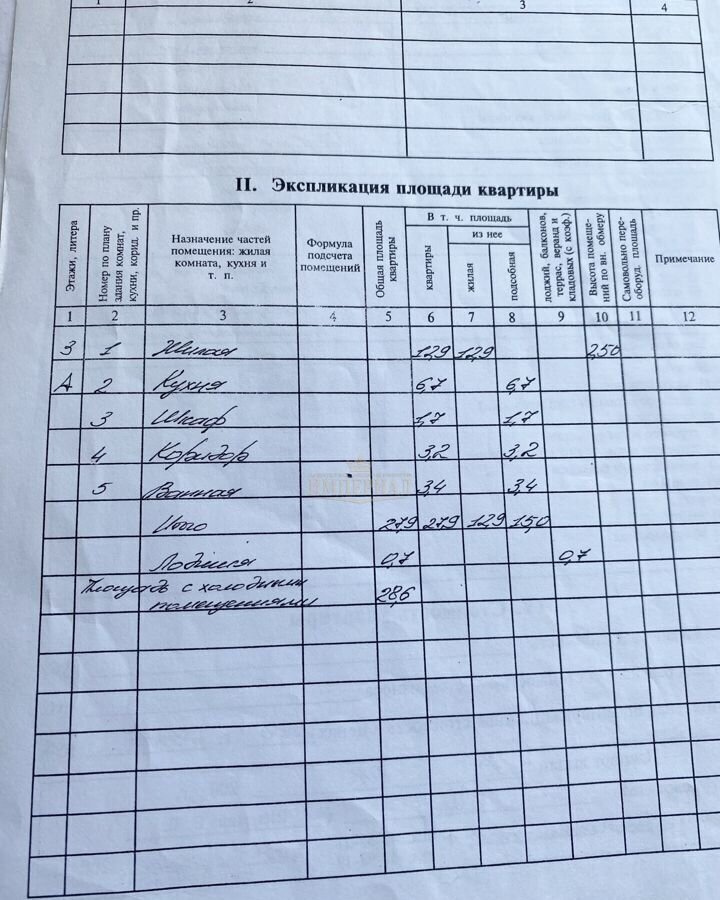 1 2 3 4
II. Экспликация площади квартиры
Этажи, литера
Номер по плану здания комнат, кухни, корид. и пр.
Назначение частей помещения: жилая комната, кухня и т. п.
Формула подсчета помещений
Общая площадь квартиры
В т. ч. площадь
квартиры
из нее
жилая
подсобная
лоджий, балконов, террас, веранд и кладовых (с коэф.)
Высота помещений по вн. обмеру
Самовольно переоборуд. площадь
Примечание
1 2 3 4 5 6 7 8 9 10 11 12
3 1 Жилая 12,9 12,9 2,50
А 2 Кухня 6,7 6,7
3 Шкаф 1,7 1,7
4 Коридор 3,2 3,2
5 Ванная 3,4 3,4
ИМПЕРИАЛ
Итого 27,9 27,9 12,9 15,0
Лоджия 0,7 0,7
Площадь с холодными
помещениями 28,6